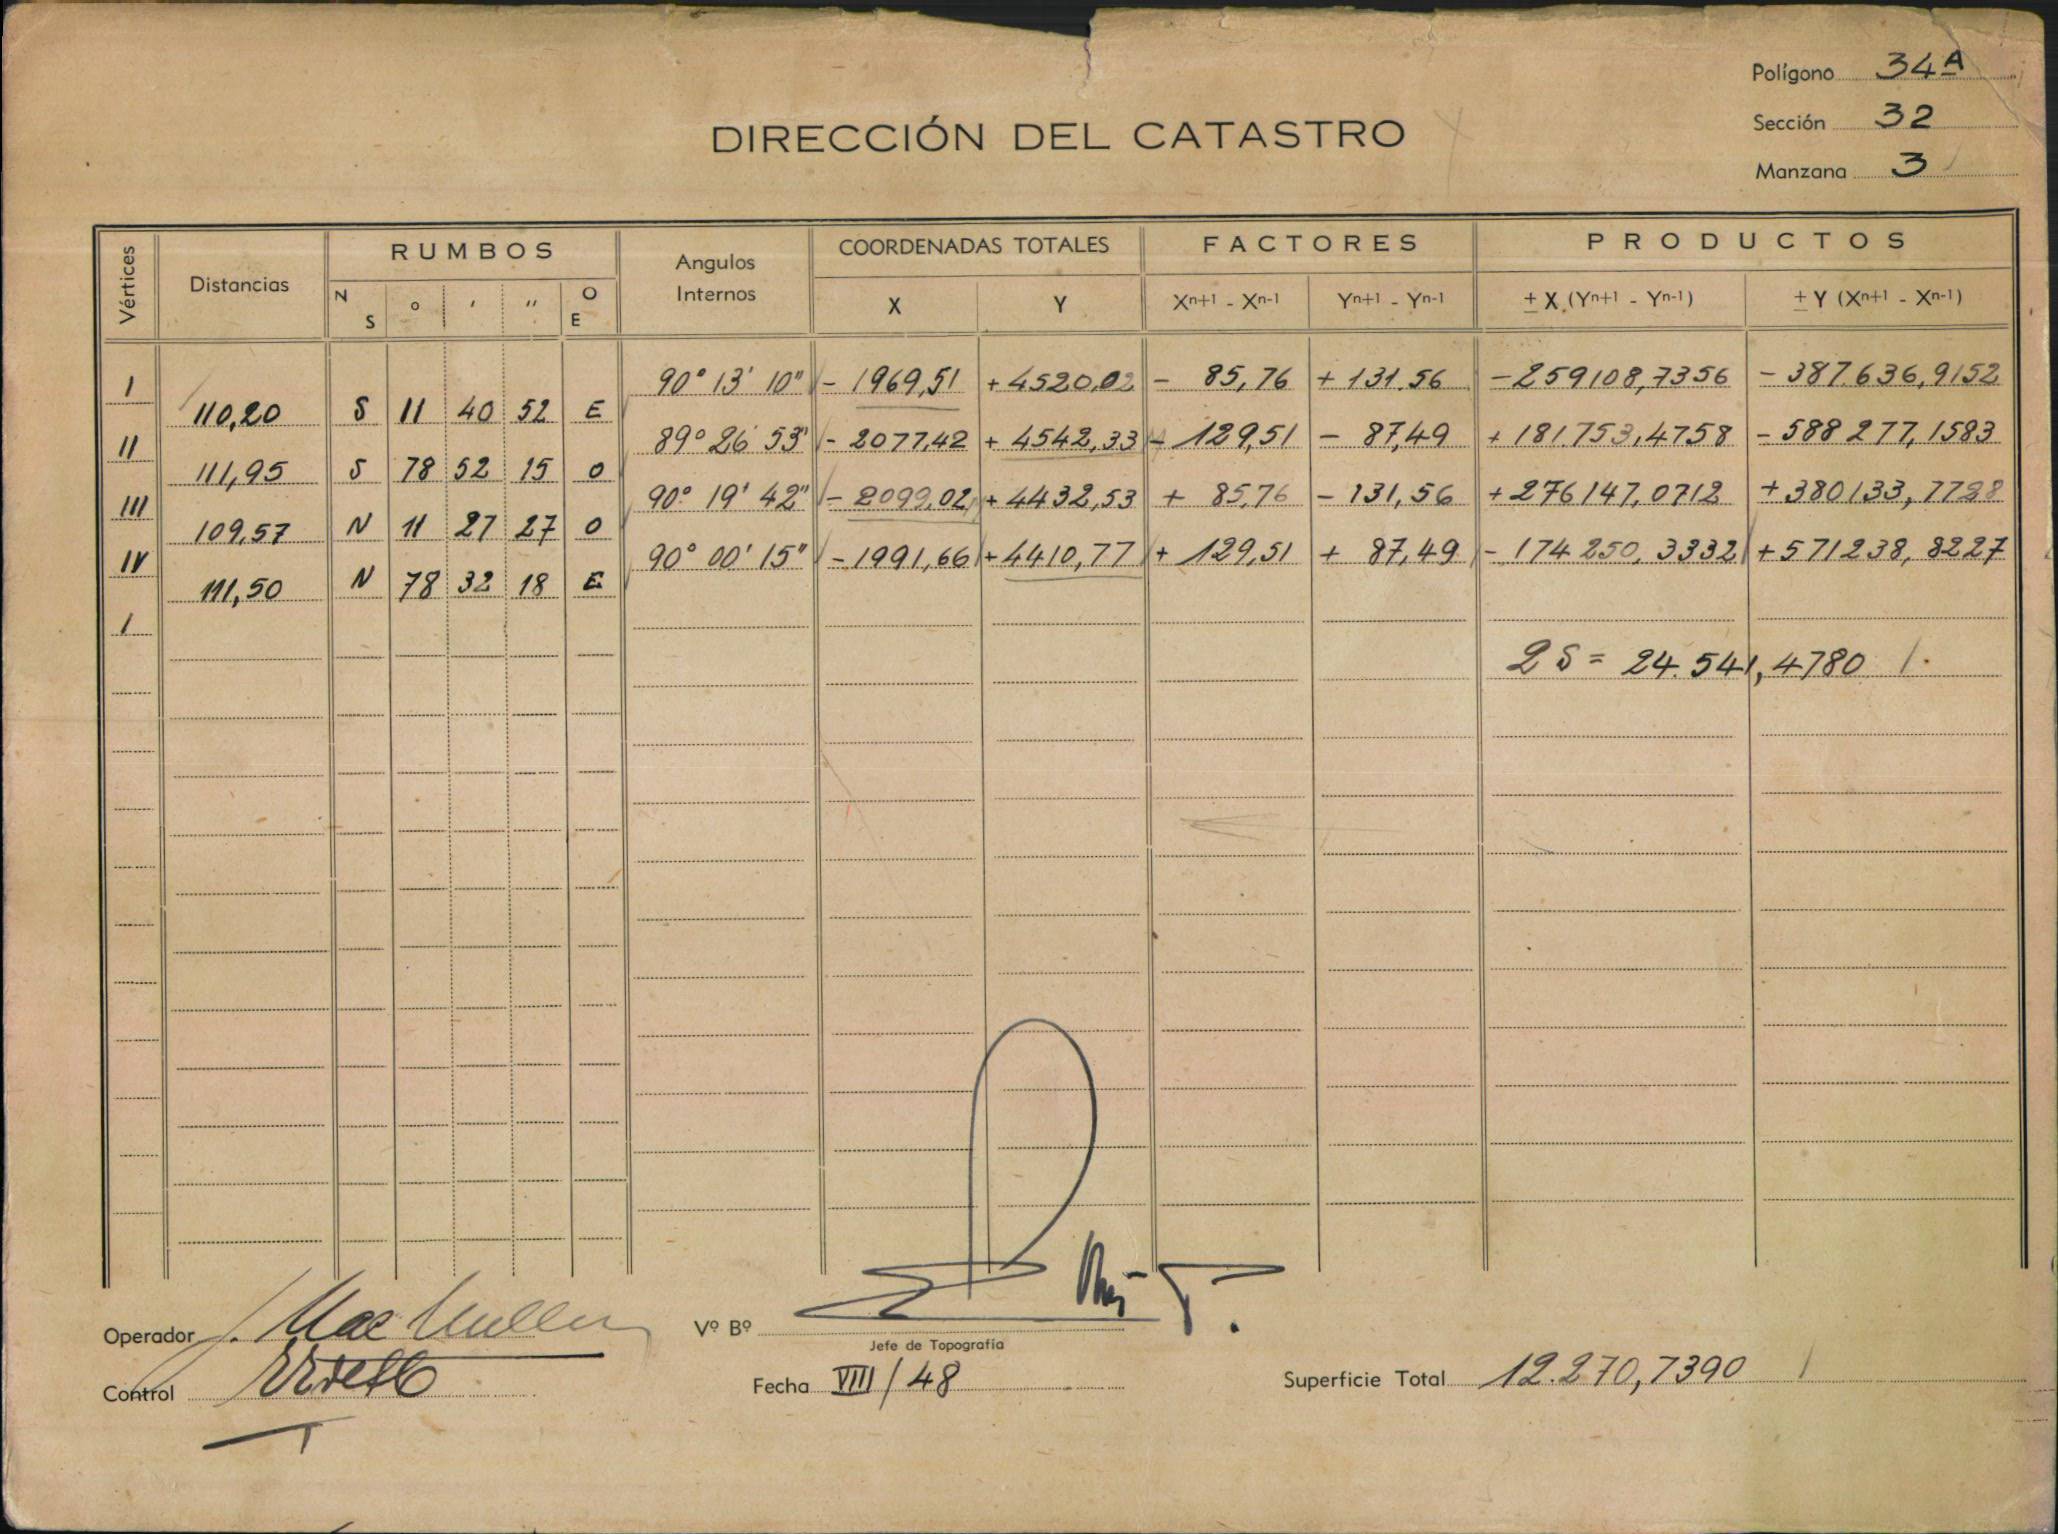 Polígono 34A
Sección 32
Manzana 3
DIRECCIÓN DEL CATASTRO
Vértices Distancias RUMBOS Angulos Internos COORDENADAS TOTALES FACTORES PRODUCTOS
N S ° ' '' O E X Y Xn+1 - Xn-1 Yn+1 - Yn-1 ± X (Yn+1 - Yn-1) ± Y (Xn+1 - Xn-1)
I 90° 13' 10" - 1969,51 + 4520,02 - 85,76 + 131.56 - 259108,7356 - 387.636,9152
110,20 S 11 40 52 E
II 89° 26' 53" - 2077,42 + 4542,33 - 129,51 - 87,49 + 181.753,4758 - 588 277,1583
111,95 S 78 52 15 O
III 90° 19' 42" - 2099,02 + 4432,53 + 85,76 - 131,56 + 276147,0712 + 380133,7728
109,57 N 11 27 27 O
IV 90° 00' 15" - 1991,66 + 4410,77 + 129,51 + 87,49 - 174 250,3332 + 571238,8227
111,50 N 78 32 18 E
I
2 S = 24.541,4780
Operador J. Mac Mullen
Vº Bº
Jefe de Topografía
Control
Fecha VIII/48
Superficie Total 12.270,7390